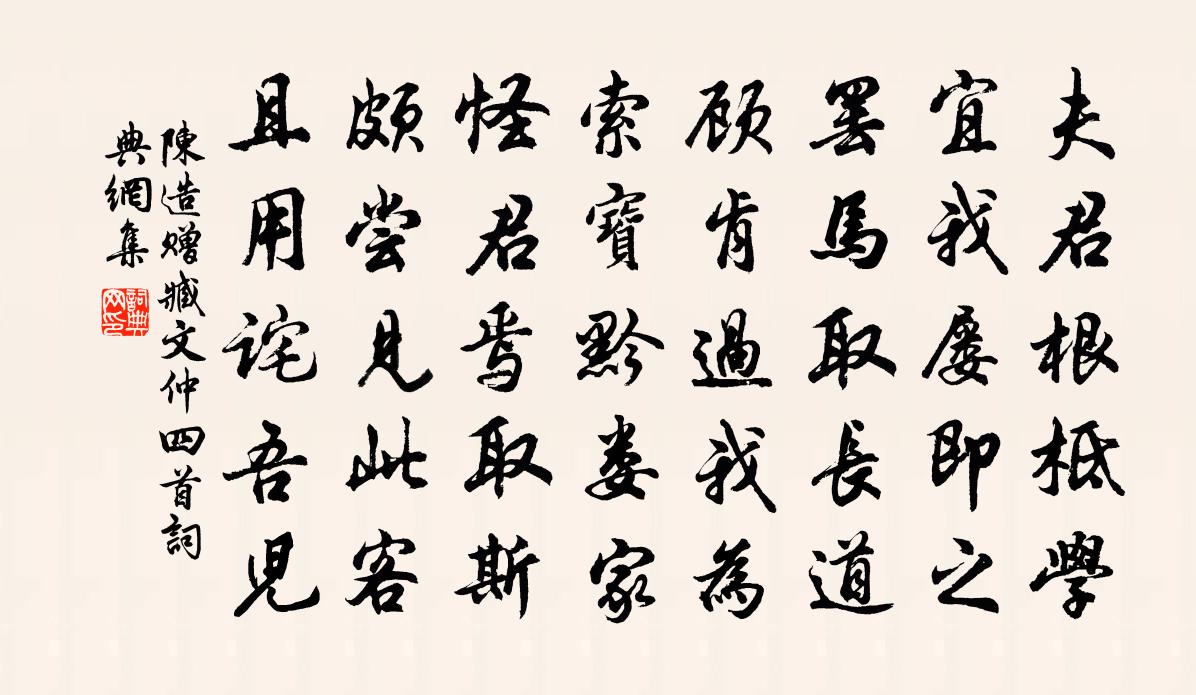 夫君根柢學
宜我屡即之
罢馬取長道
顾肯過我為
索寶黔婁家
怪君焉取斯
頗尝見此客
且用詫吾児
陳造赠臧文仲四首詞
典網集
詞典
网印